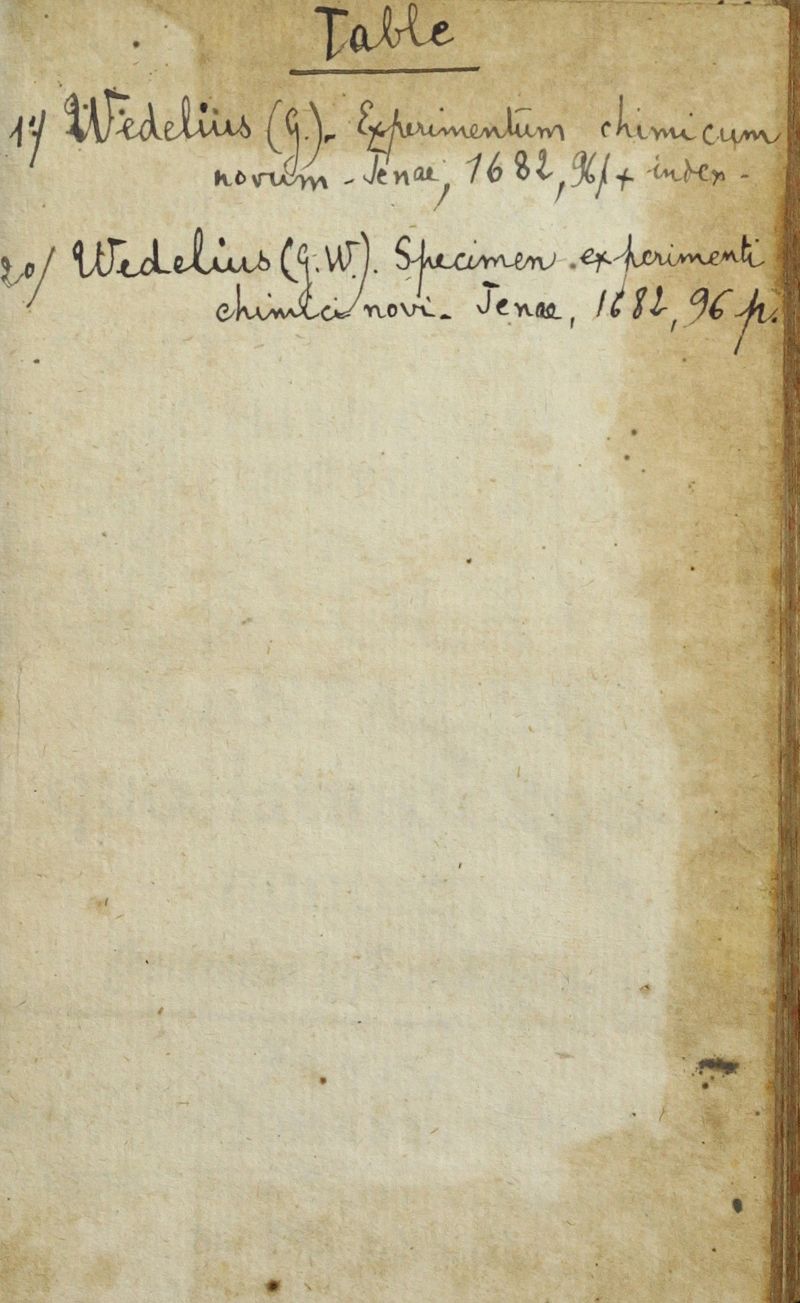 Table
1°/ Wedelius (G.). Experimentum chimicum
novum - Jenae, 1682, 96p + index -
2°/ Wedelius (G.W.). Specimen experimenti
chimici novi - Jenae, 1682, 96 p.